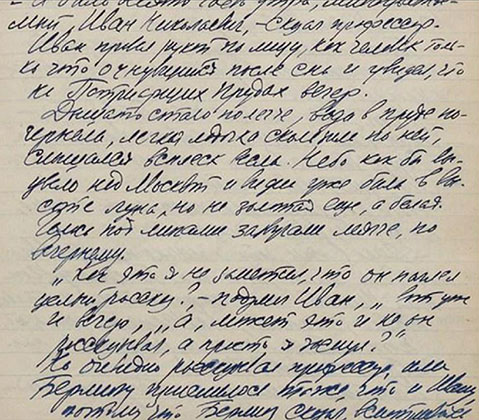 – И было всего часов десять утра, многоуважае-
мый Иван Николаевич, – сказал профессор.
Иван провел рукой по лицу, как человек толь-
ко что очнувшийся после сна и увидел, что
на Патриарших Прудах вечер.
Дышать стало полегче, вода в пруде по-
чернела, легкая лодочка скользила по ней,
слышался всплеск весла. Небо как бы
над Москвой и видна уже была в вы-
соте луна, но не золотая еще, а белая.
Голоса под липами звучали мягче, по
вечернему.
„Как это я не заметил, что он наплел
целый рассказ?, – подумал Иван, „вот уж
и вечер, „а, может это и не он
рассказывал, а просто я заснул?“
Но очевидно рассказывал профессор, или
Берлиозу приснилось тоже, что и Ивану
потому что Берлиоз сказал,